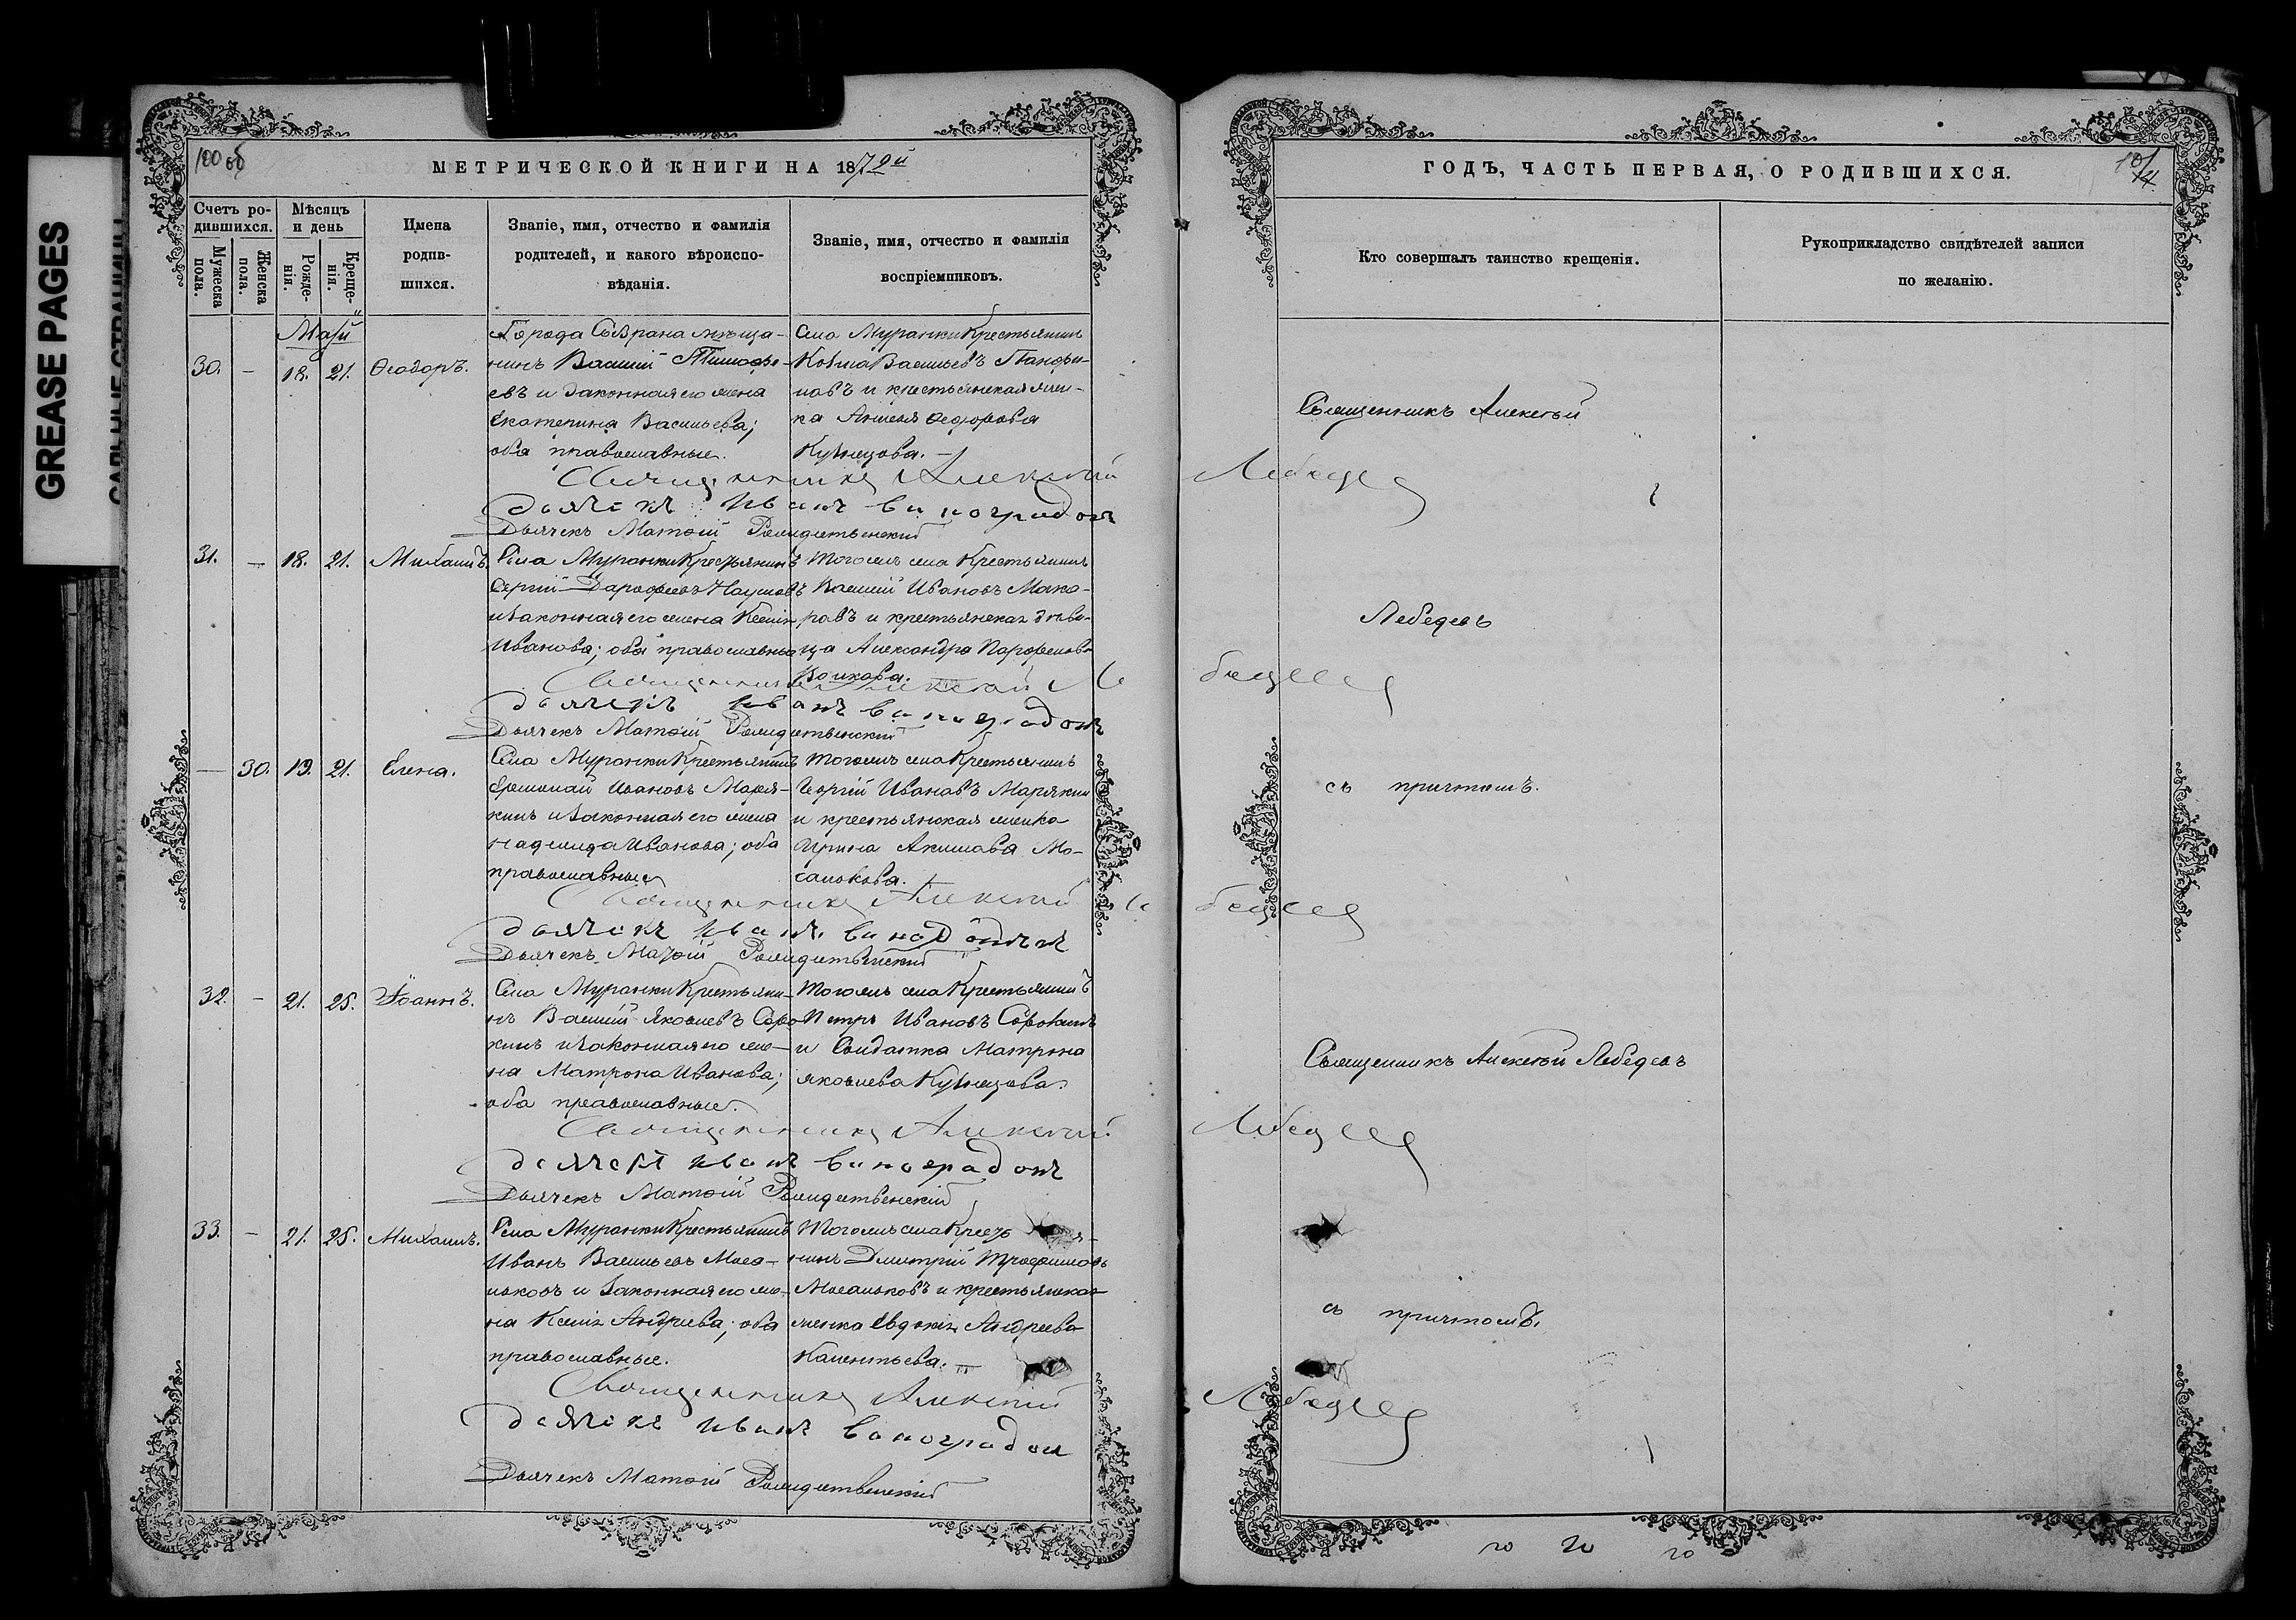 GREASE PAGES
100 об
МЕТРИЧЕСКОЙ КНИГИ НА 1872й
Счетъ ро-
дившихся.
Мужеска пола.
Женска пола.
Мѣсяцъ
и день
Рожде-
нія.
Креще-
нія.
Имена
родив-
шихся.
Званіе, имя, отчество и фамилія
родителей, и какого вѣроиспо-
вѣданія.
Званіе, имя, отчество и фамилія
воспріемниковъ.
Май
30. – 18. 21. Ѳеодоръ.
Города Сызрана мѣща-
нинъ Василій Тимофе-
евъ и законная его жена
Екатерина Васильева;
оба православные.
Села Муранки Крестьянинъ
Козма Васильевъ Панфи-
ловъ и крестьянская жен-
ка Ѳедорова
Кузнецова. –
Священникъ Алексѣй Лебедев
дьячекъ Иванъ Виноградовъ
Дьячекъ Матѳій Рождественскій
31. – 18. 21. Михаилъ.
Села Муранки Крестьянинъ
Сергій Дорофеевъ Наумовъ
и законная его жена Ксенія
Иванова; оба православные
Тогожъ села Крестьянинъ
Василій Ивановъ Мака-
ровъ и крестьянская дѣви-
ца Александра Парфенова
Волкова.
Священникъ Алексѣй Лебедев
дьячекъ Иванъ Виноградовъ
Дьячекъ Матѳій Рождественскій
– 30. 19. 21. Елена.
Села Муранки Крестьянинъ
Ермолай Ивановъ Маря-
кинъ и законная его жена
Надежда Иванова; оба
православные
Тогожъ села Крестьянинъ
Георгій Ивановъ Марякин
и крестьянская женка
Ирина Акимова Мо-
салькова.
Священникъ Алексѣй Лебедев
дьячекъ Иванъ
Дьячекъ Матѳій Рождественскій
32. – 21. 25. Іоаннъ.
Села Муранки Крестьяни-
нъ Василій Яковлевъ Соро-
кинъ и законная его же-
на Матрона Иванова;
оба православные.
Тогожъ села Крестьянинъ
Петръ Ивановъ Сорокинъ
и Солдатка Матрона
Яковлева Кузнецова.
Священникъ Алексѣй Лебедев
дьячекъ Иванъ Виноградовъ
Дьячекъ Матѳій Рождественскій
33. – 21. 25. Михаилъ.
Села Муранки Крестьянинъ
Иванъ Васильевъ Моса-
льковъ и законная его же-
на Ксенія Андреева; оба
православные.
Тогожъ села Кресть
нинъ Димитрій Трофимовъ
Мосальковъ и крестьянская
женка Евдокія Андреева
Священникъ Алексѣй Лебедев
дьячекъ Иванъ Виноградов
Дьячекъ Матѳій Рождественскій
ГОДЪ, ЧАСТЬ ПЕРВАЯ, О РОДИВШИХСЯ.
101
14.
Кто совершалъ таинство крещенія.
Рукоприкладство свидѣтелей записи
по желанію.
Священникъ Алексѣй
Лебедевъ
съ причтомъ.
Священникъ Алексѣй Лебедевъ
съ причтомъ.